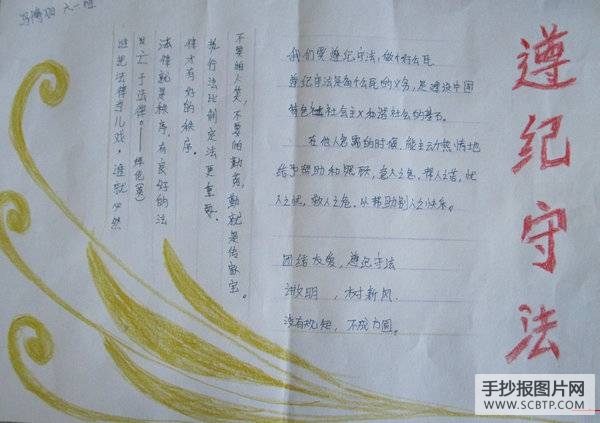 遵纪守法
六一班
谁把法律当儿戏，谁就必然
亡于法律。——拜伦（英）
法律就是秩序，有良好的法
律才有好的秩序。
执行法比制定法更重要。
不要怕人笑，不要怕勤苦，勤就是传家宝。
我们要遵纪守法，做个好公民
遵纪守法是每个公民的义务，是建设中国
特色社会主义和谐社会的基石。
在他人急需的时候，能主动热情地
给予帮助和照顾，急人之急，帮人之苦，忧
人之忧，救人之危，从帮助别人之快乐。
团结友爱，遵纪守法
讲文明，树新风
没有规矩，不成方圆。
手抄报图片网
WWW.SCBTP.COM